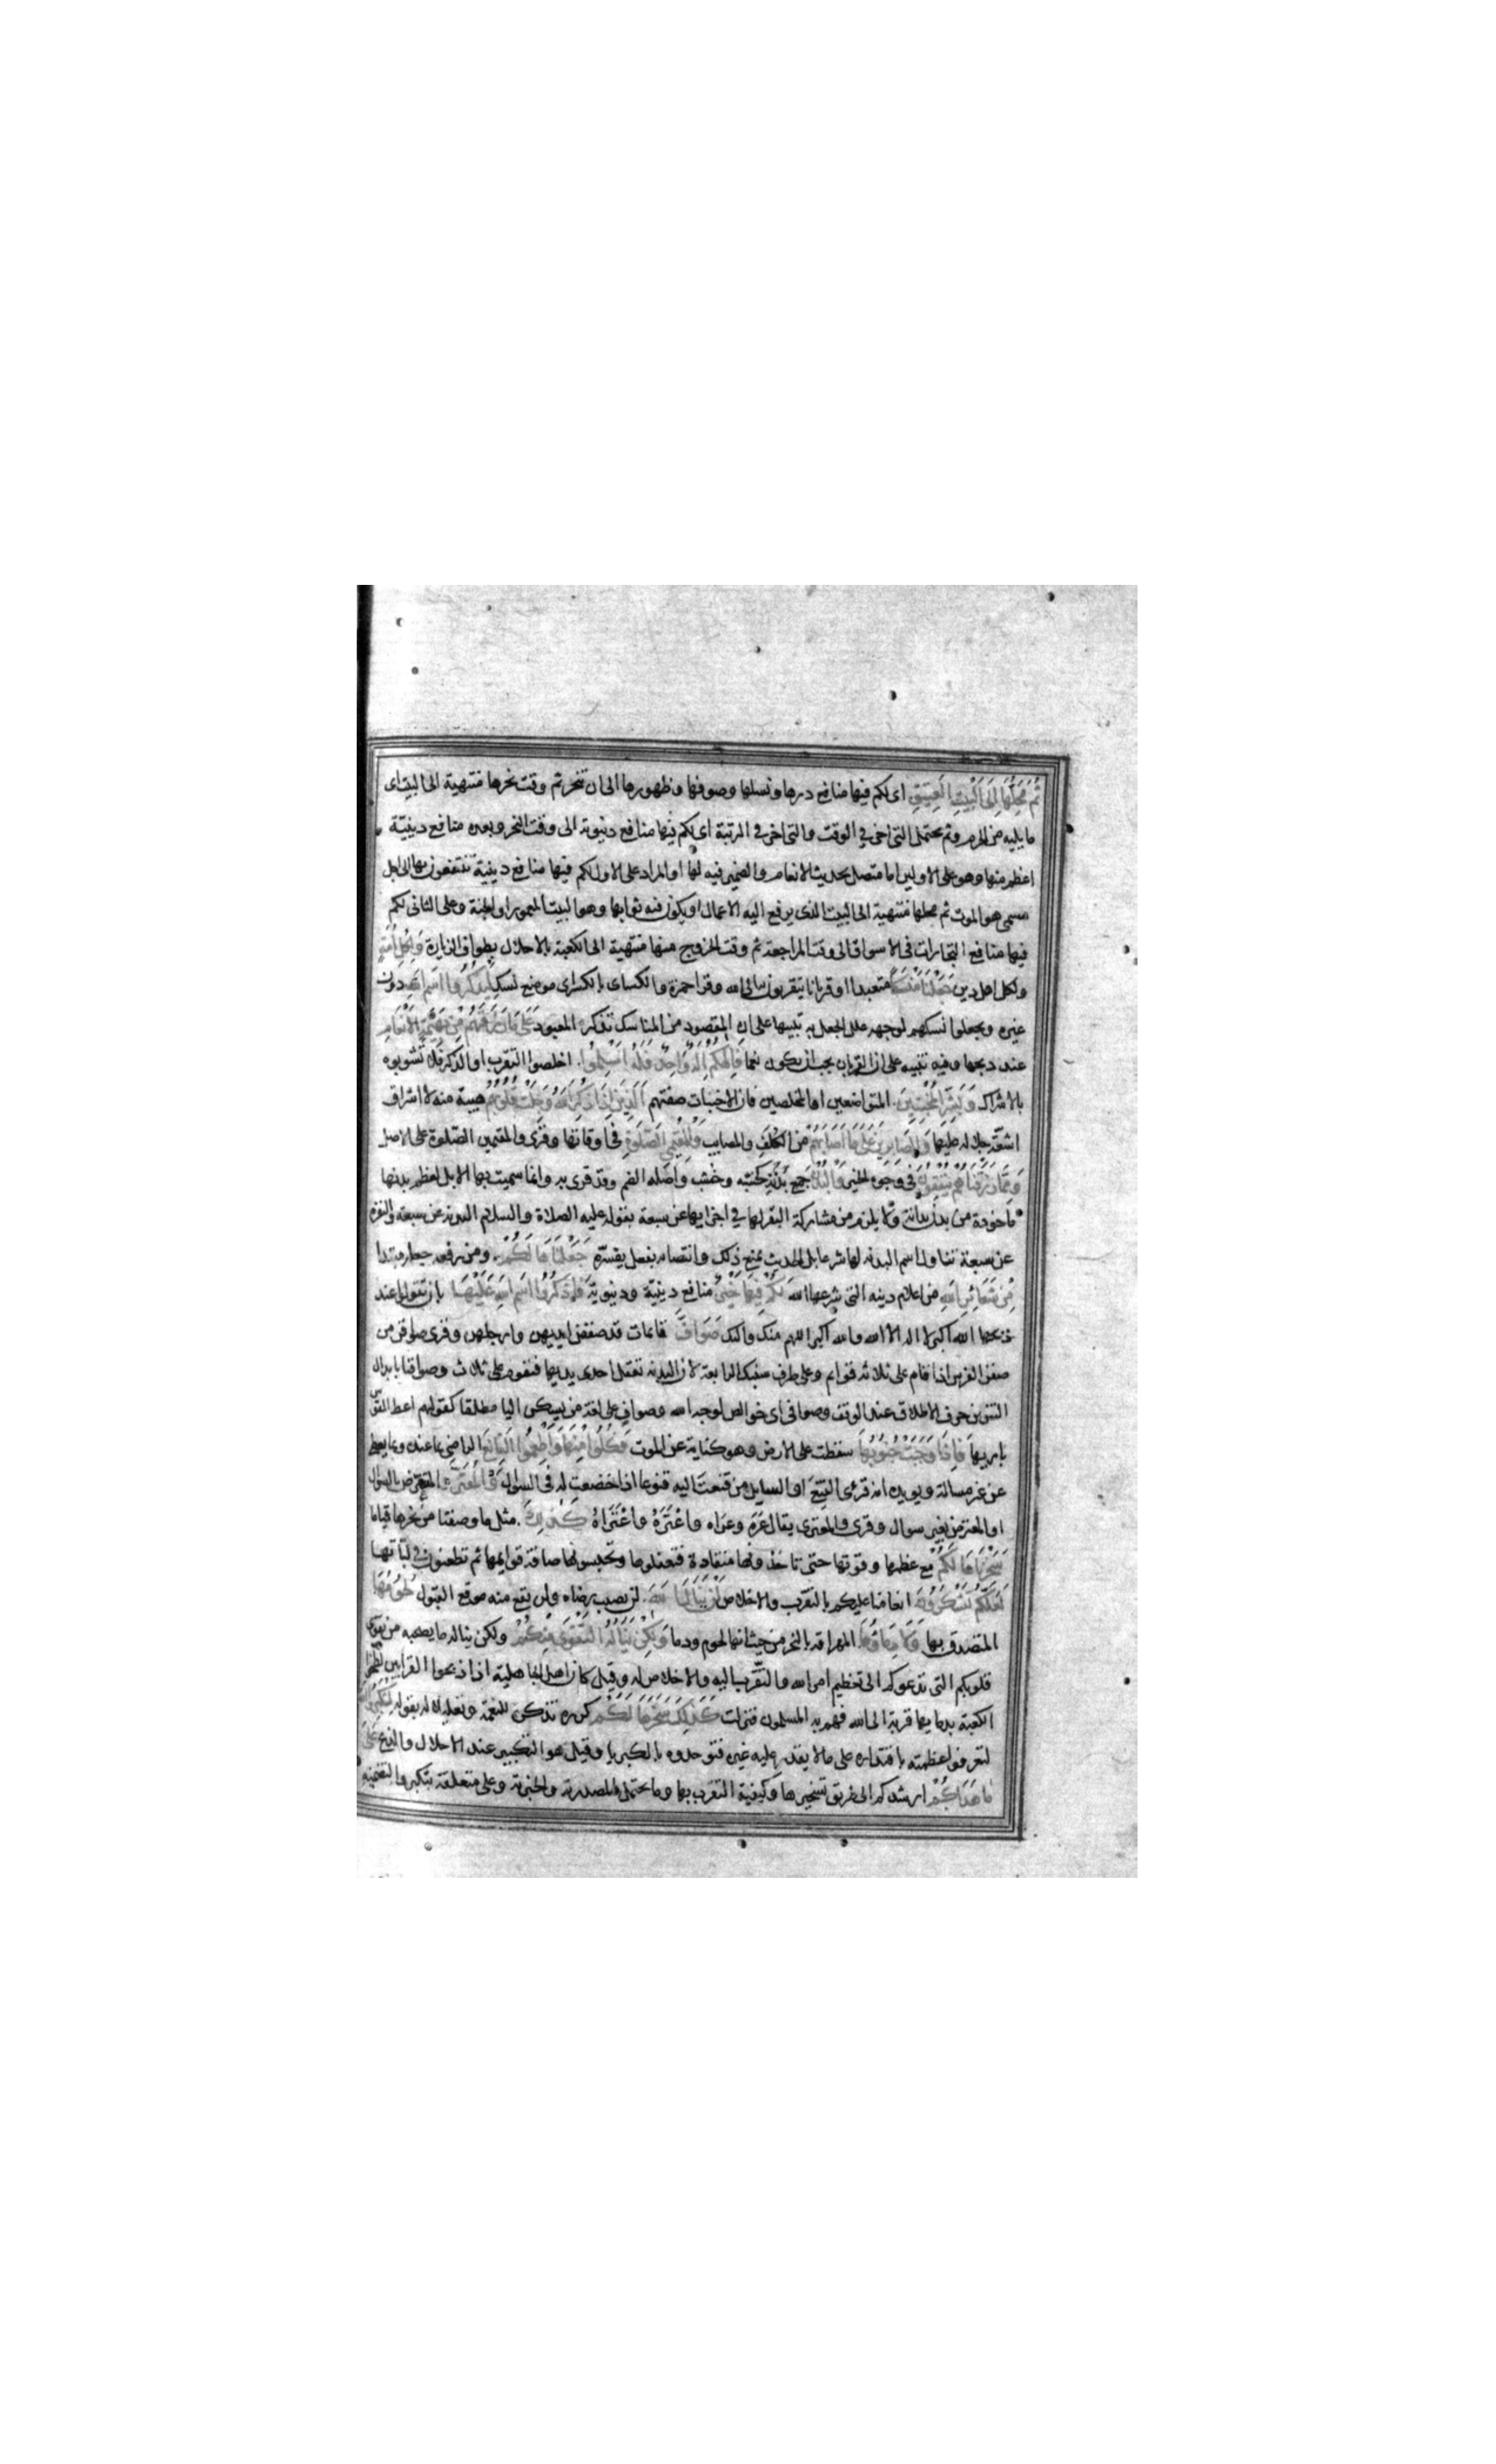 ثُمَّ مَحِلُّهَا إِلَى الْبَيْتِ الْعَتِيقِ اى لكم فيها منافع درها ونسلها وصوفها وظهورها الى ان تنحر ثم وقت نحرها منتهية الى البيت اى
ما يليه من الحرم وثم يحتمل التراخى فى الوقت والتراخى فى الرتبة اى لكم فيها منافع دنيوية الى وقت النحر وبعده منافع دينيّة
اعظم منها وهو على الاولين اما متصل بحديث الانعام والضمير فيه لها او المراد على الاول لكم فيها منافع دينية تنتفعون بها الى اجل
مسمى هو الموت ثم محلها منتهية الى البيت الذى يرفع اليه الاعمال او يكون فيه ثوابها وهو البيت المعمور او الجنة وعلى الثانى لكم
فيها منافع التجارات فى الاسواق الى وقت المراجعة ثم وقت الخروج منها منتهية الى الكعبة بالاحلال بطواف الزيارة وَلِكُلِّ أُمَّةٍ
ولكل اهل دين جَعَلْنَا مَنْسَكًا متعبدا او قربانا يتقربون به الى الله وقرا حمزة والكساى بالكسر اى موضع نسك لِيَذْكُرُوا اسْمَ اللَّهِ دون
غيره ويجعلوا نسكهم لوجهه علل الجعل به تنبيها على ان المقصود من المناسك تذكر المعبود عَلَى مَا رَزَقَهُمْ مِنْ بَهِيمَةِ الْأَنْعَامِ
عند ذبحها وفيه تنبيه على ان القربان يجب ان يكون نعما فَإِلَهُكُمْ إِلَهٌ وَاحِدٌ فَلَهُ أَسْلِمُوا. اخلصوا التقرب او الذكر فلا تشوبوه
بالاشراك وَبَشِّرِ الْمُخْبِتِينَ. المتواضعين او المخلصين فان الاخبات صفتهم الَّذِينَ إِذَا ذُكِرَ اللَّهُ وَجِلَتْ قُلُوبُهُمْ هيبة منه لاشراق
اشعّة جلاله عليها وَالصَّابِرِينَ عَلَى مَا أَصَابَهُمْ من الكلف والمصايب وَالْمُقِيمِي الصَّلَوةِ فى اوقاتها وقرى والمقيمين الصّلوة على الاصل
وَمِمَّا رَزَقْنَاهُمْ يُنْفِقُونَ فى وجوه الخير وَالْبُدْنَ جمع بَدَنَةٍ كخشبة وخشب واصله الضم وقد قرى به وانما سميت بها الابل لعظم بدنها
ماخوذة من بدن بدانة ولا يلزم من مشاركة البقر لها فى اجزايها عن سبعة بقوله عليه الصلاة والسلام البدنة عن سبعة والبقرة
عن سبعة تناول اسم البدنة لها شرعا بل الحديث يمنع ذلك وانتصابه بفعل يفسّره جَعَلْنَاهَا لَكُمْ. ومن رفعه جعله مبتدا
مِنْ شَعَائِرِ اللَّهِ من اعلام دينه التى شرعها الله لَكُمْ فِيهَا خَيْرٌ منافع دينية ودنيوية فَاذْكُرُوا اسْمَ اللَّهِ عَلَيْهَا بان تقولوا عند
ذبحها الله اكبر لا اله الا الله والله اكبر اللهم منك واليك صَوَافَّ قائمات قد صففن ايديهن وارجلهن وقرى صوافن من
صفن الفرس اذا قام على ثلاثة قوايم وعلى طرف سنبك الرابعة لان البدنة تعقل احدى يديها فتقوم على ثلاث وصوافنا بابدال
التنوين حرف الاطلاق عند الوقف وصوافى اى خوالص لوجه الله وصوافٍ على لغة من يسكن اليا مطلقا كقولهم اعط القوس
باريها فَإِذَا وَجَبَتْ جُنُوبُهَا سقطت على الارض وهو كناية عن الموت فَكُلُوا مِنْهَا وَأَطْعِمُوا الْقَانِعَ الراضى بما عنده وبما يعطى
عن غير مسالة ويويده انه قرئ القَنِعَ او السايل من قنعت اليه قنوعا اذا خضعت له فى السوال وَالْمُعْتَرَّ المتعرض بالسوال
او المعتر من بغير سوال وقرى والمعترى يقال عَرَّه وعراه وَاعْتَرَّهُ وَاعْتَرَاهُ كَذَلِكَ. مثل ما وصفنا من نحرها قياما
سَخَّرْنَاهَا لَكُمْ مع عظمها وقوتها حتى تاخذونها منقادة فتعقلوها وتحبسونها صافة قوايمها ثم تطعنون فى لبّاتها
لَعَلَّكُمْ تَشْكُرُونَ انعامنا عليكم بالتقرّب والاخلاص لَنْ يَنَالَ اللَّهَ. لن يصيب رضاه ولن يقع منه موقع القبول لُحُومُهَا
المتصدق بها وَلَا دِمَاؤُهَا المهراقة بالنحر من حيث انها لحوم ودما وَلَكِنْ يَنَالُهُ التَّقْوَى مِنْكُمْ ولكن يناله ما يصحبه من تقوى
قلوبكم التى تدعوكم الى تعظيم امر الله والتقرّب اليه والاخلاص له وقيل كان اهل الجاهلية اذا ذبحوا القرابين لطخوا
الكعبة بدمايها قربة الى الله فهم به المسلمون فنزلت كَذَلِكَ سَخَّرَهَا لَكُمْ كرره تذكير للنعمة وتعليلا له بقوله لِتُكَبِّرُوا اللَّهَ
لتعرفوا عظمته باقتداره على ما لا يقدر عليه غيره فتوحدوه بالكبريا وقيل هو التكبير عند الاحلال والذبح عَلَى
مَا هَدَاكُمْ ارشدكم الى طريق تسخيرها وكيفية التقرب بها وما يحتمل المصدرية والخبرية وعلى متعلقة بتكبروا لتضمنه